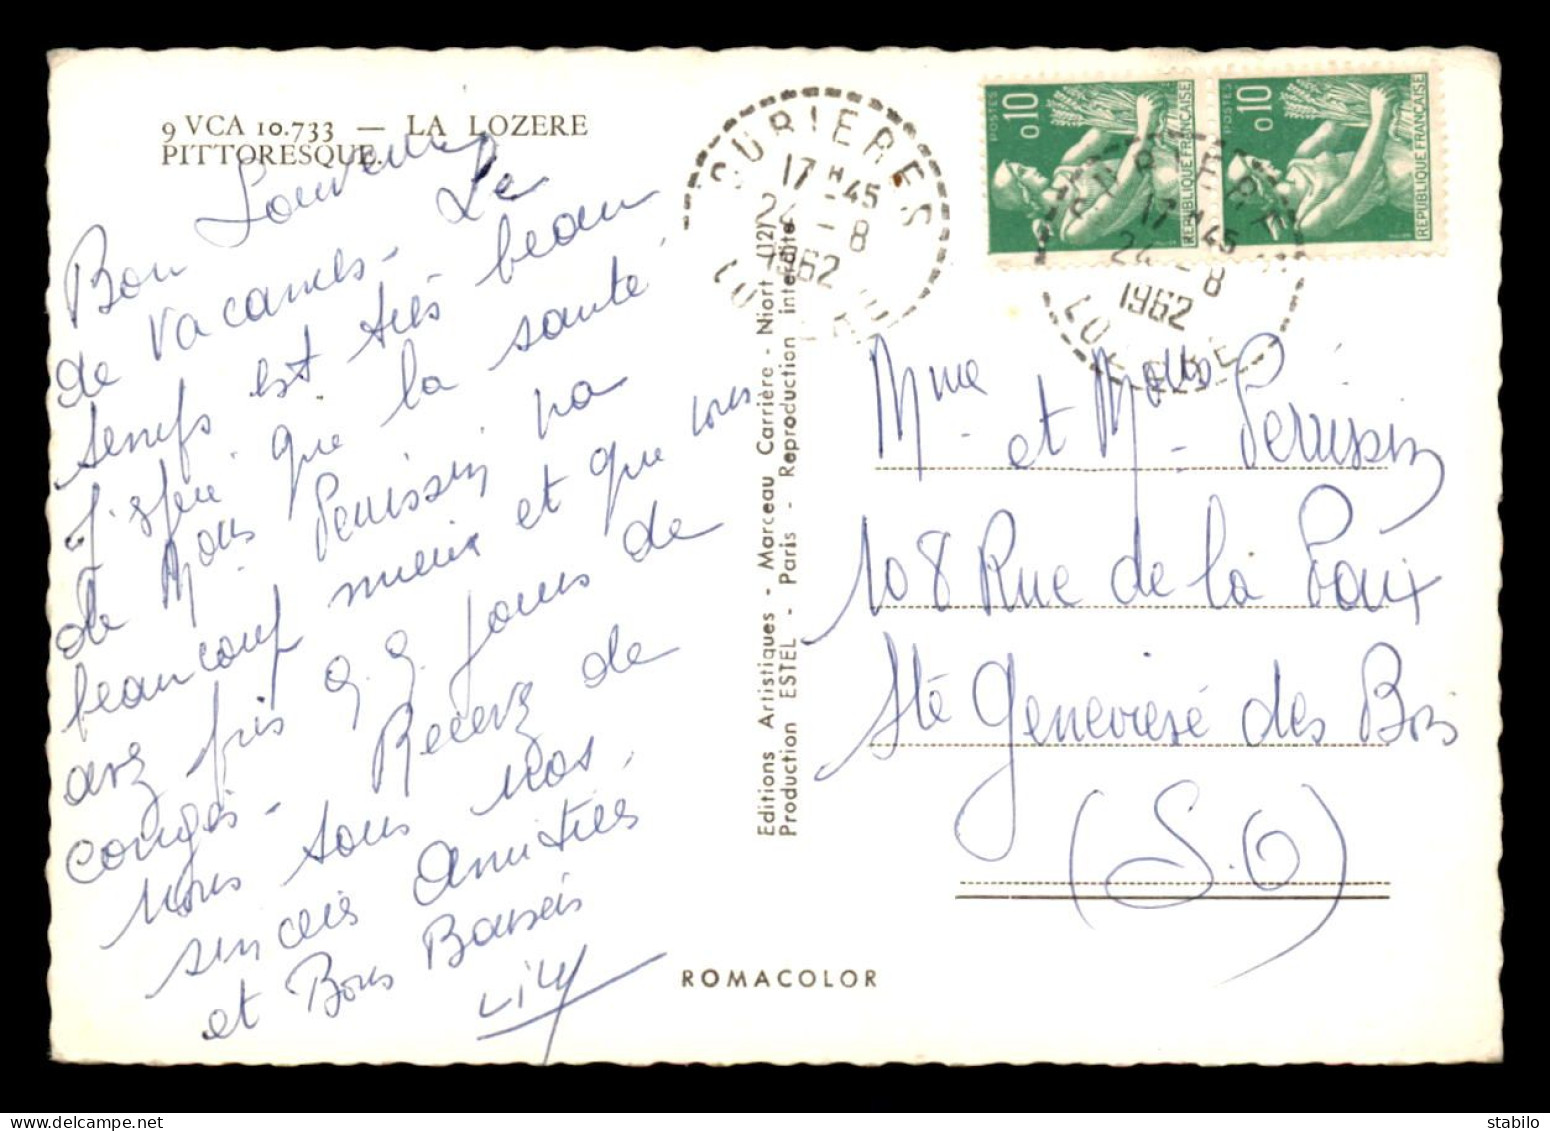 9 VCA 10.733 — LA LOZERE
PITTORESQUE.
Bon Souvenir
de Vacances - Le
temps est très beau
J'espère que la santé
de Mons Perrissin va
beaucoup mieux et que vous
avez pris q.q. jours de
congés - Recevez de
nous tous nos
sincères Amitiés
et Bons Baisers
Lily
Editions Artistiques - Marceau Carrière - Niort (12)
Production ESTEL - Paris - Reproduction interdite
ROMACOLOR
CUBIERES
17 H 45
24 - 8
1962
LOZERE
POSTES
0,10
REPUBLIQUE FRANÇAISE
POSTES
0,10
REPUBLIQUE FRANÇAISE
17 H 45
24 - 8
1962
LOZERE
Mme et Mons Perrissin
108 Rue de la Paix
Ste Geneviève des Bois
(S.O)
www.delcampe.net
sterenblo